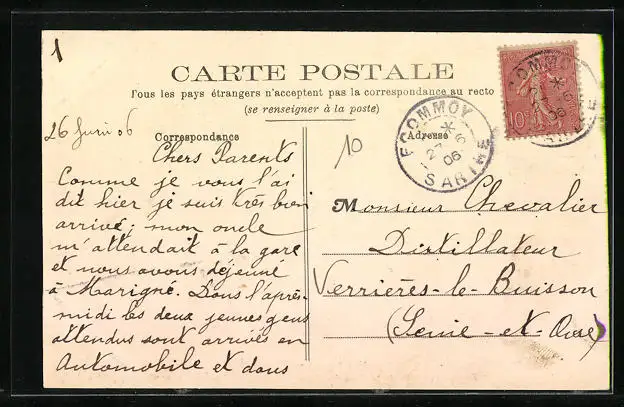 1
CARTE POSTALE
Tous les pays étrangers n'acceptent pas la correspondance au recto
(se renseigner à la poste)
26 Juin 06
Correspondance
Chers Parents
Comme je vous l'ai
dit hier je suis très bien
arrivé; mon oncle
m'attendait à la gare
et nous avons déjeuné
à Marigné. Dans l'après-
midi les deux jeunes gens
attendus sont arrivés en
Automobile et dans
10
Adresse
ECOMMOY
27 6
06
SARTHE
ECOMMOY
06
10c
Monsieur Chevalier
Distillateur
Verrières-le-Buisson
(Seine-et-Oise)